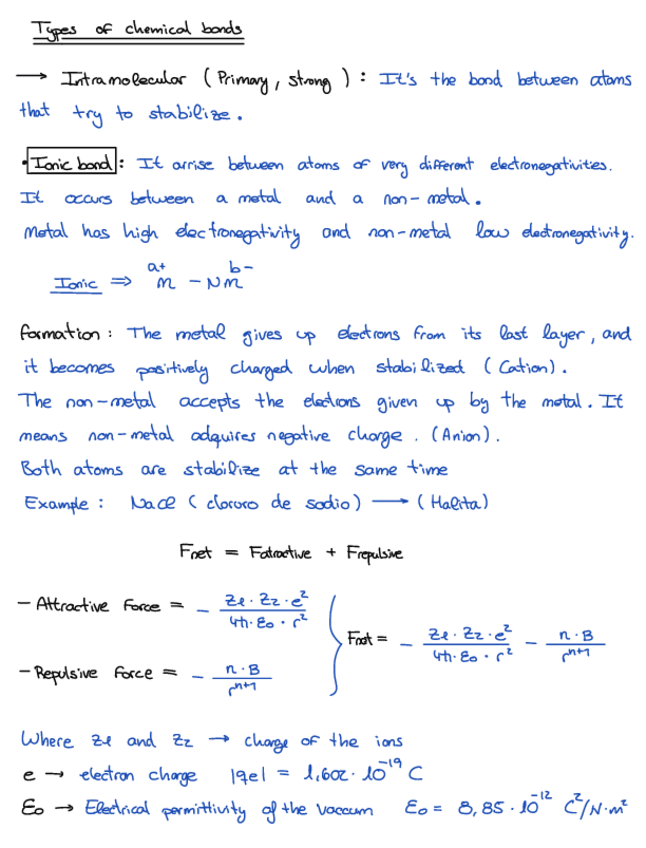 Types of chemical bonds
→ Intramolecular (Primary, strong): It's the bond between atoms
that try to stabilize.
• Ionic bond: It arrise between atoms of very different electronegativities.
It occurs between a metal and a non-metal.
Metal has high electronegativity and non-metal low electronegativity.
Ionic ⇒ M^a+ - NM^b-
Formation: The metal gives up electrons from its last layer, and
it becomes positively charged when stabilized (Cation).
The non-metal accepts the electrons given up by the metal. It
means non-metal adquires negative charge. (Anion).
Both atoms are stabilize at the same time
Example: NaCl (cloruro de sodio) → (Halita)
Fnet = Fattractive + Frepulsive
- Attractive Force = - Z1·Z2·e²/4π·ε0·r²
Fnet = - Z1·Z2·e²/4π·ε0·r² - n·B/r^n+1
- Repulsive Force = - n·B/r^n+1
Where Z1 and Z2 → charge of the ions
e → electron charge |qe| = 1,602·10^-19 C
ε0 → Electrical permittivity of the vaccum ε0 = 8,85·10^-12 C²/N·m²